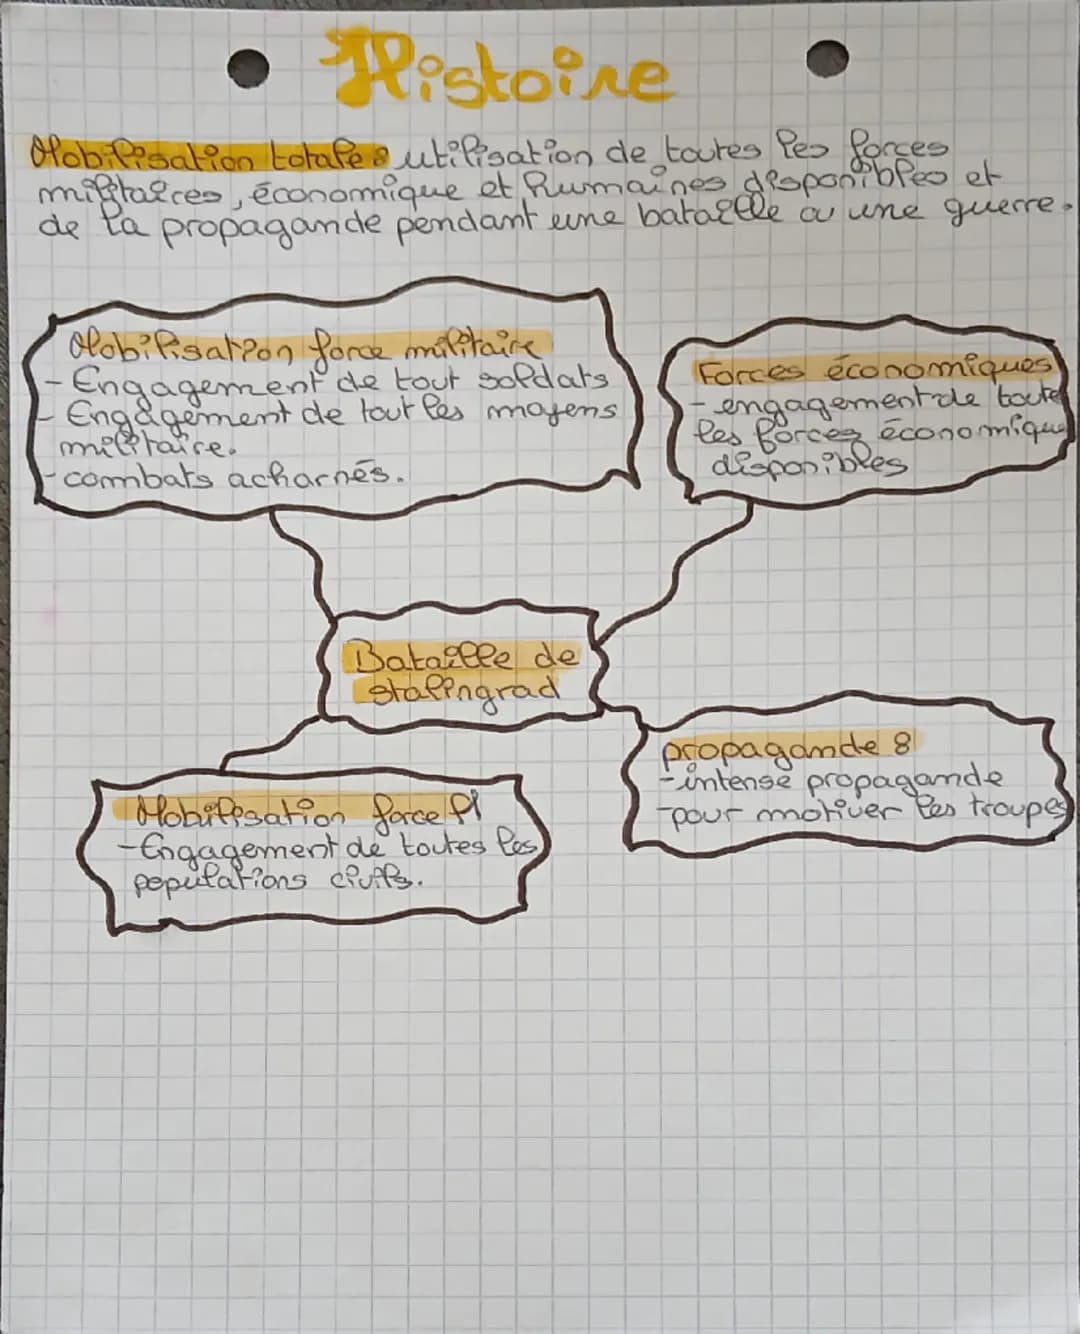 Histoire
Mobilisation totale : utilisation de toutes les forces
militaires, économique et humaines disponibles et
de la propagande pendant une bataille ou une guerre.
Mobilisation force militaire
- Engagement de tout soldats
- Engagement de tout les moyens
militaire.
- combats acharnés.
Forces économiques
- engagement de toute
les forces économique
disponibles
Bataille de
stalingrad
propagande :
- intense propagande
- pour motiver les troupes
Mobilisation force
- Engagement de toutes les
populations civils.